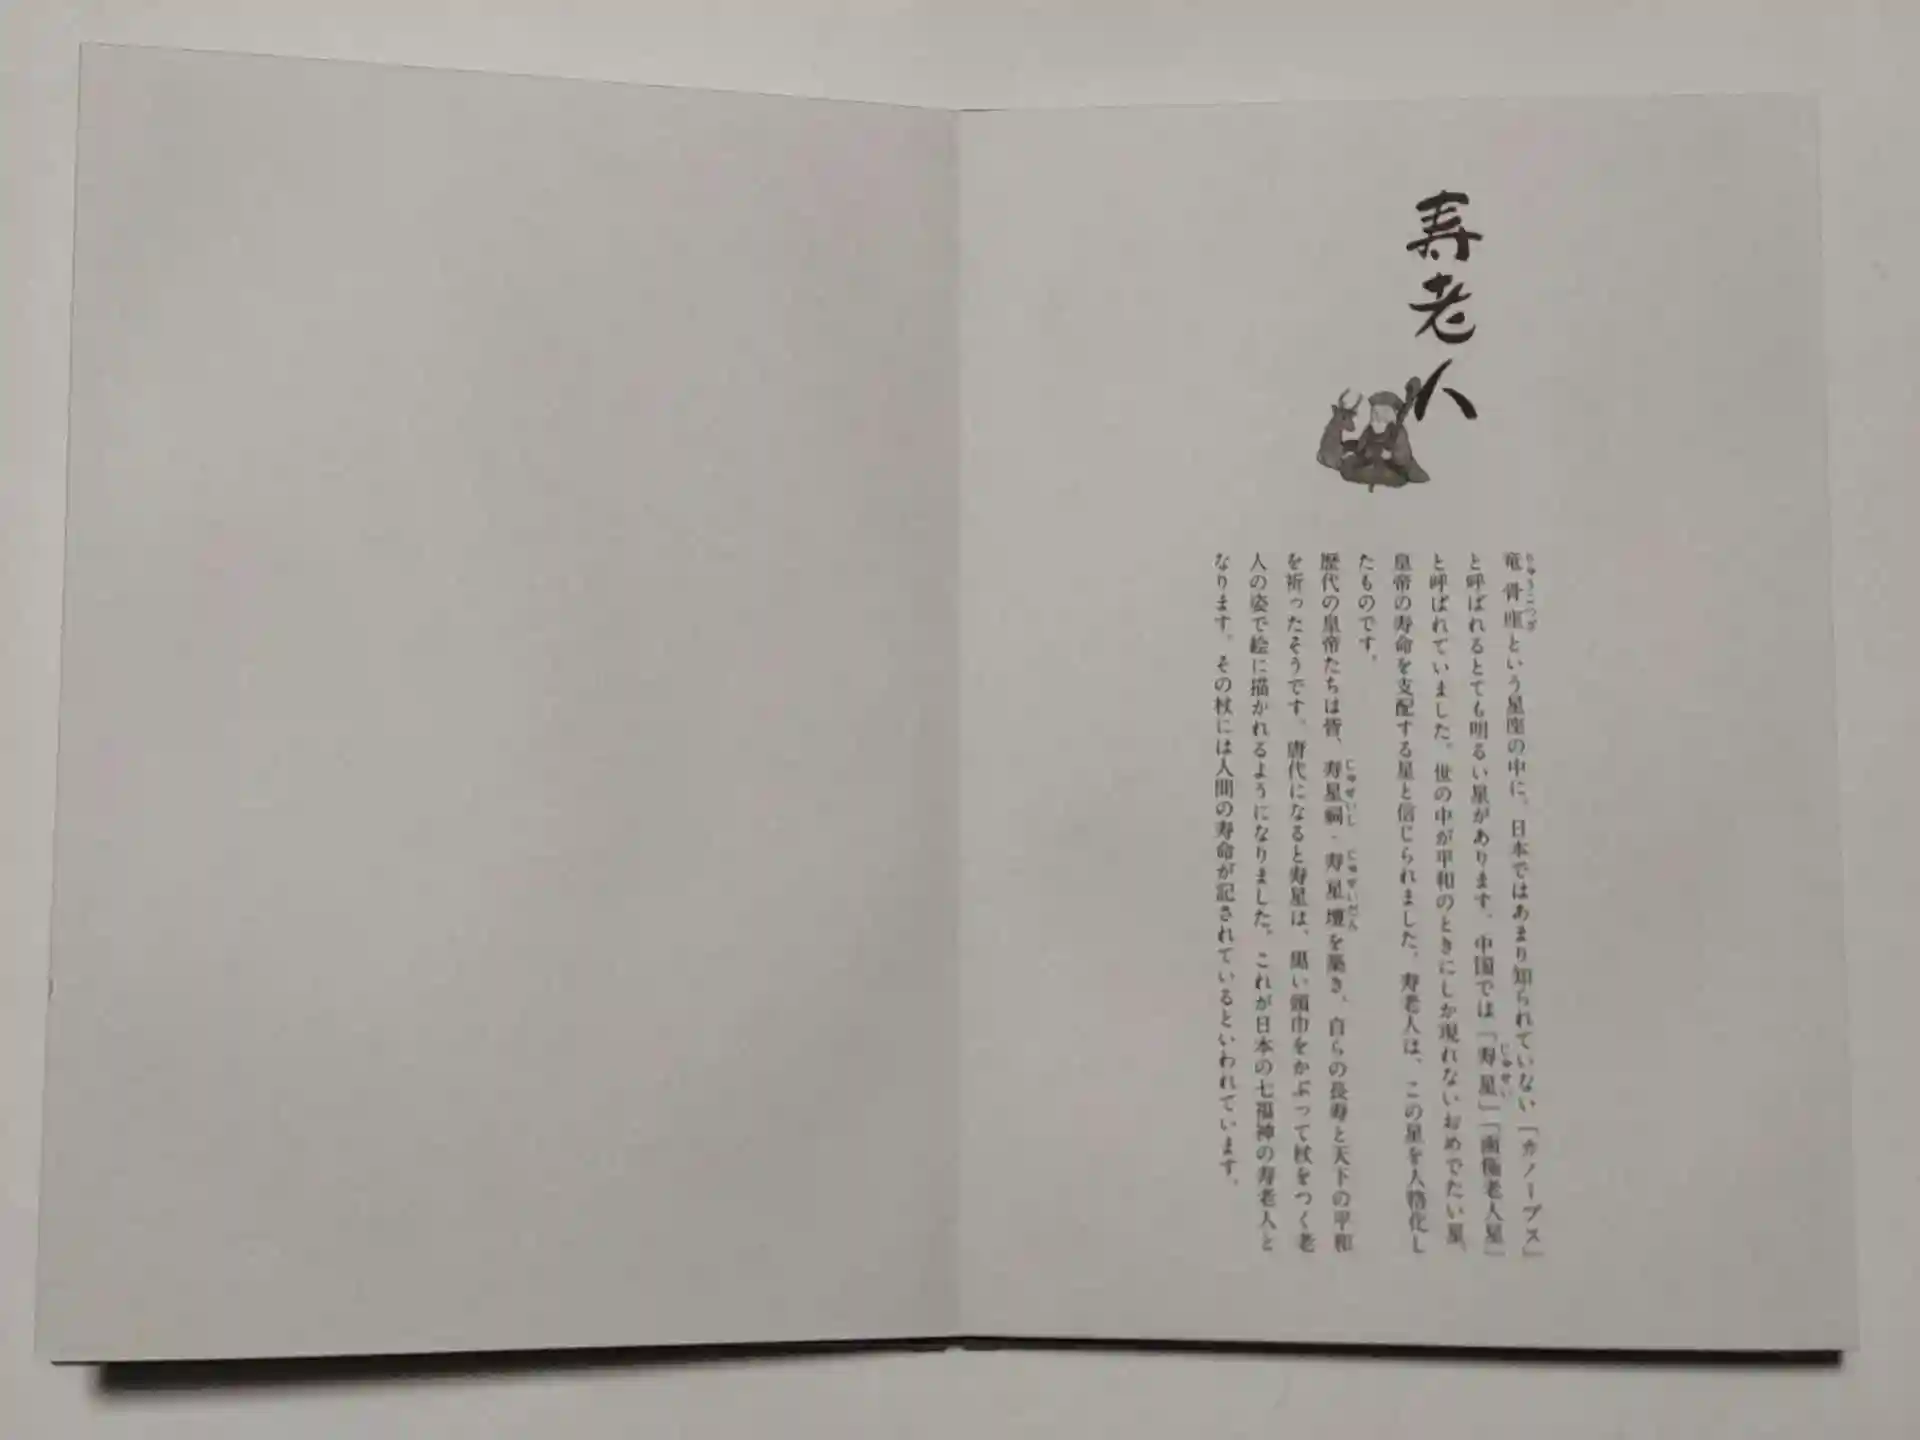 寿老人
竜骨座という星座の中に、日本ではあまり知られていない「カノープス」
と呼ばれるとても明るい星があります。中国では「寿星」「南極老人星」
と呼ばれていました。世の中が平和のときにしか現れないおめでたい星、
皇帝の寿命を支配する星と信じられました。寿老人は、この星を人格化し
たものです。
歴代の皇帝たちは皆、寿星祠・寿星壇を築き、自らの長寿と天下の平和
を祈ったそうです。唐代になると寿星は、黒い頭巾をかぶって杖をつく老
人の姿で絵に描かれるようになりました。これが日本の七福神の寿老人と
なります。その杖には人間の寿命が記されているといわれています。